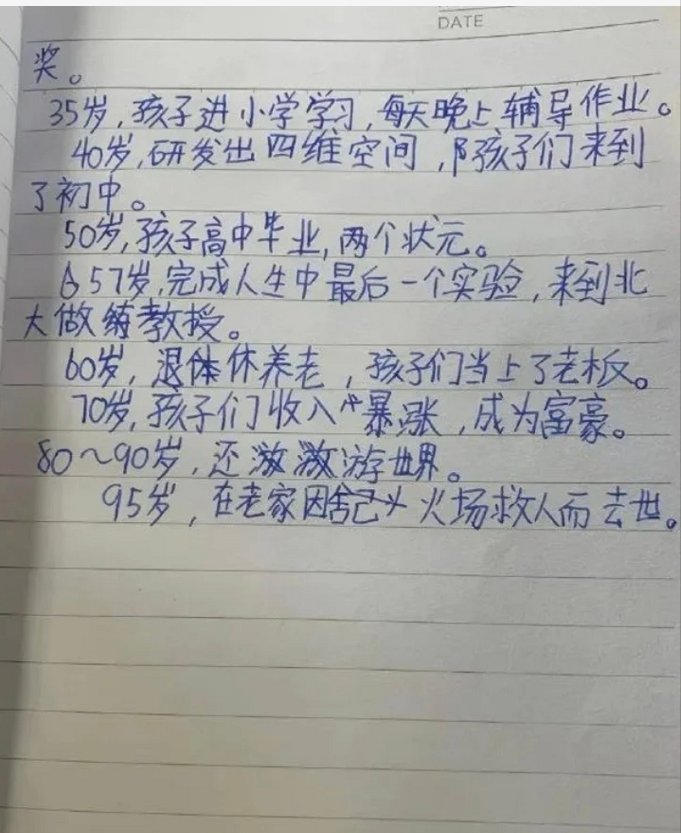 DATE
奖。
35岁,孩子进小学学习,每天晚上辅导作业。
40岁,研发出四维空间,阝孩子们来到
了初中。
50岁,孩子高中毕业,两个状元。
57岁,完成人生中最后一个实验,来到北
大做教授。
60岁,退休养老,孩子们当上了老板。
70岁,孩子们收入暴涨,成为富豪。
80~90岁,还游世界。
95岁,在老家因舍己火场救人而去世。